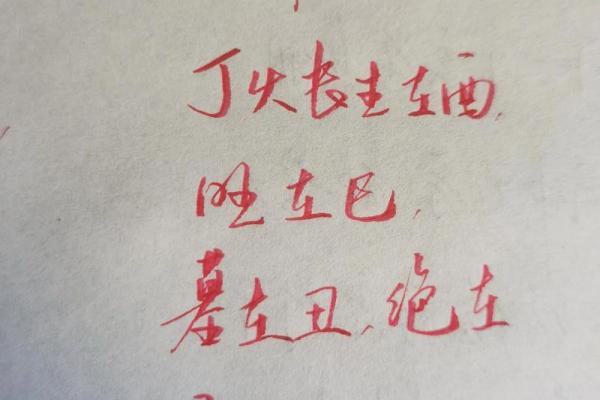 丁火长生在酉,
旺在巳,
墓在丑,绝在